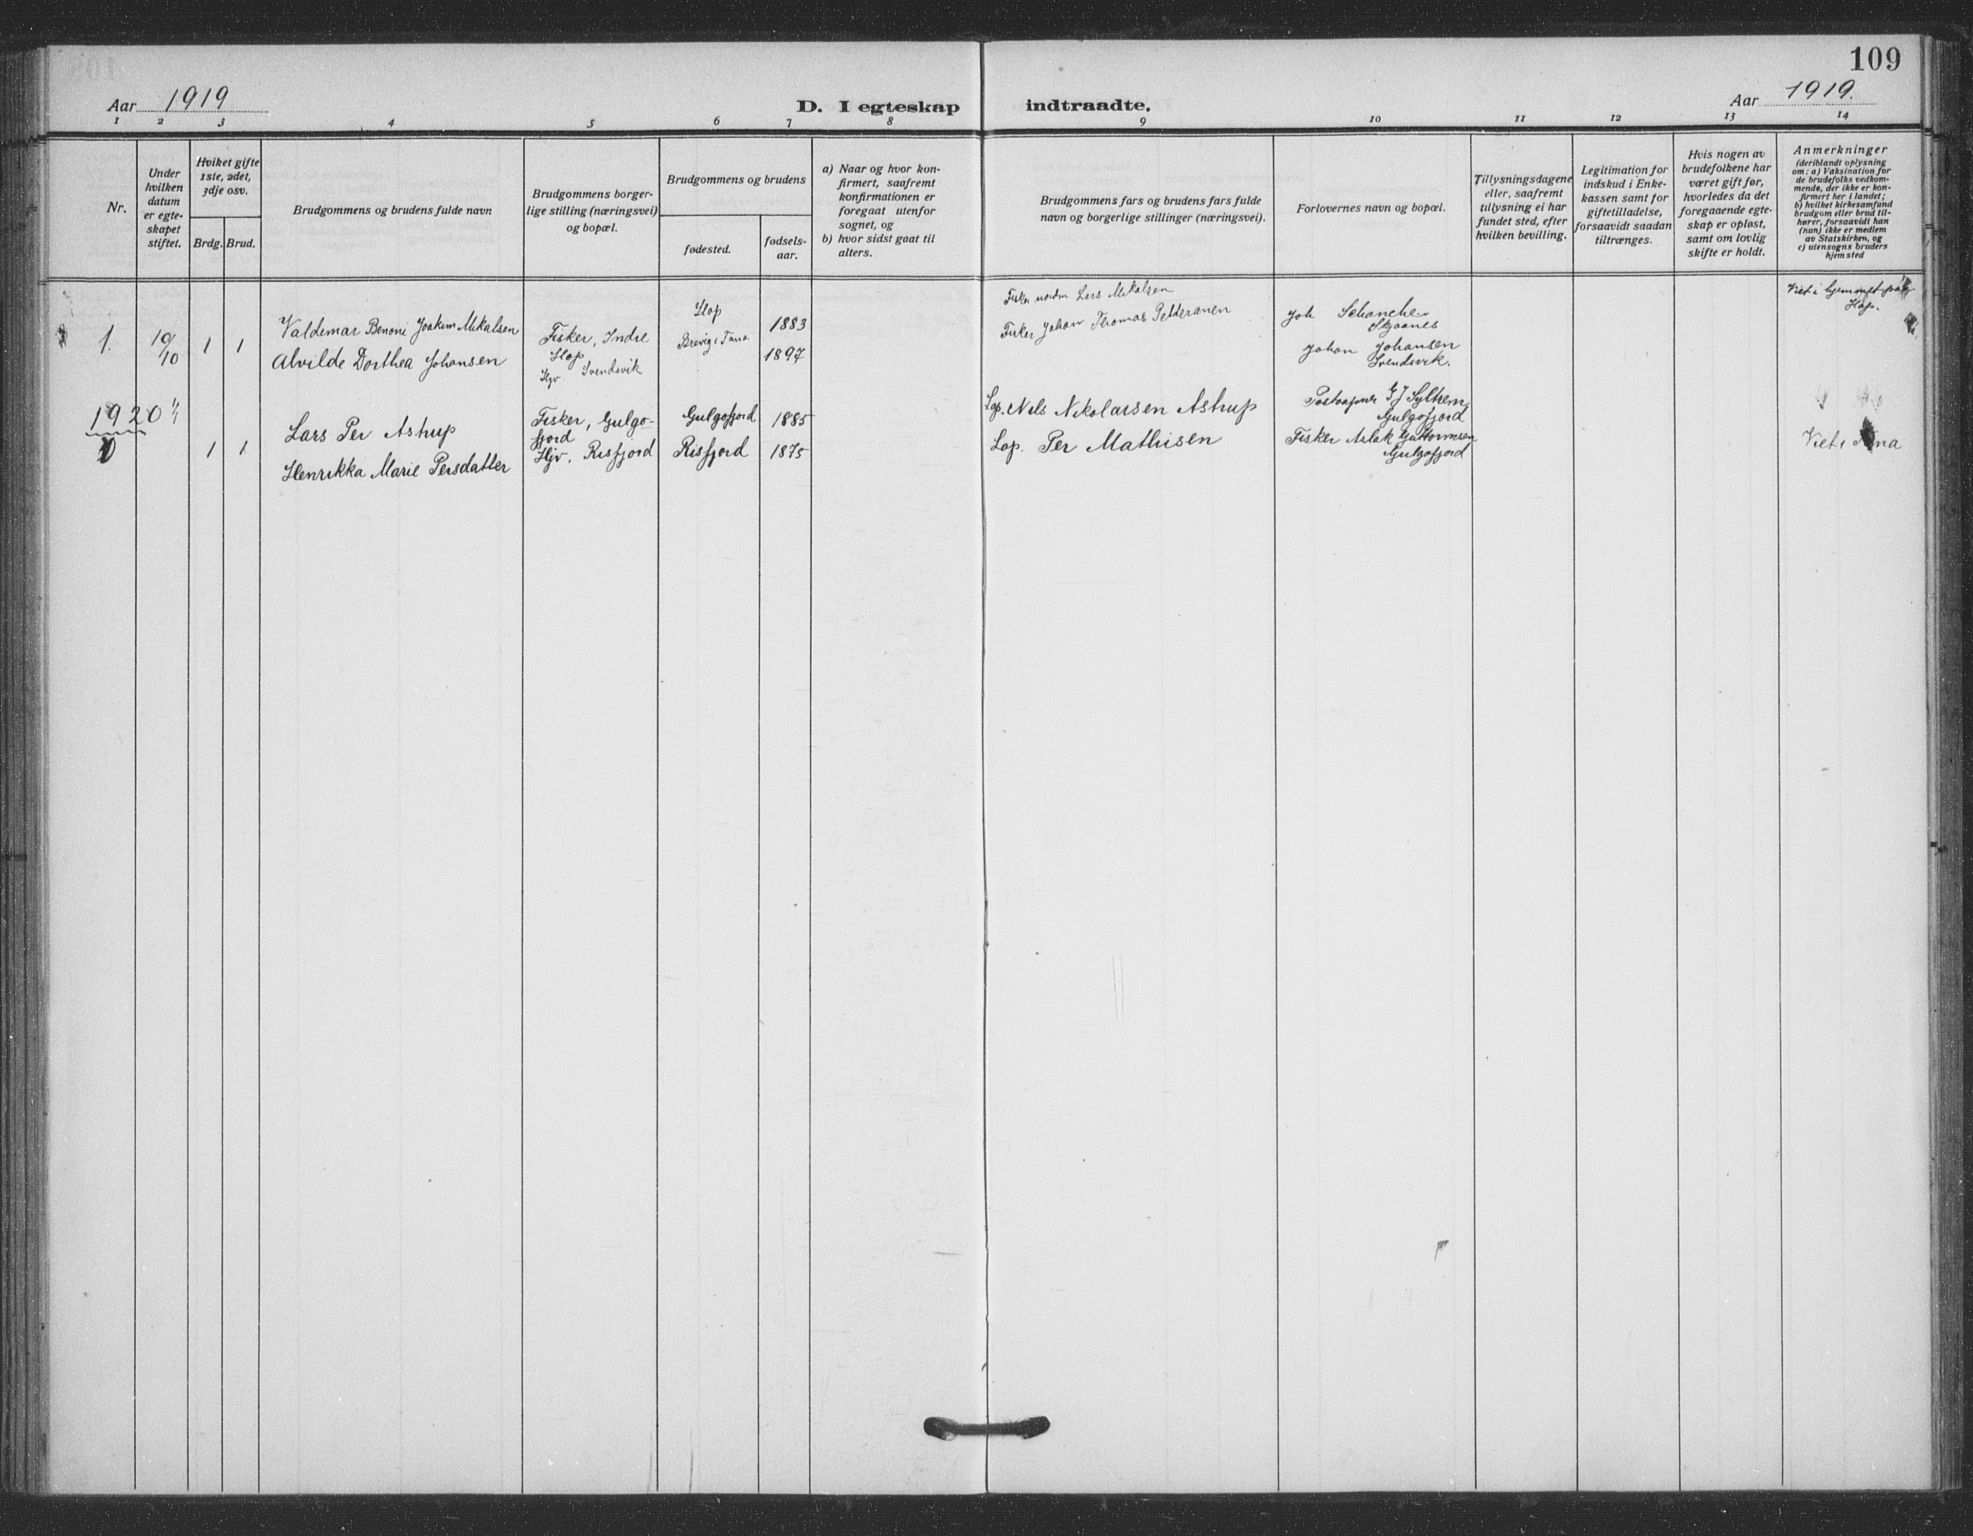 109
Aar 1919
D. I egteskap indtraadte.
Aar 1919.
1 2 3 4 5 6 7 8 9 10 11 12 13 14
Nr.
Under
hvilken
datum
er egte-
skapet
stiftet.
Hviket gifte
1ste, 2det,
3dje osv.
Brdg. Brud.
Brudgommens og brudens fulde navn
Brudgommens borger-
lige stilling (næringsvei)
og bopæl.
Brudgommens og brudens
fødested.
fødsels-
aar.
a) Naar og hvor kon-
firmert, saafremt
konfirmationen er
foregaat utenfor
sognet, og
b) hvor sidst gaat til
alters.
Brudgommens fars og brudens fars fulde
navn og borgerlige stillinger (næringsvei).
Forlovernes navn og bopæl.
Tillysningsdagene
eller, saafremt
tillysning ei har
fundet sted, efter
hvilken bevilling.
Legitimation for
indskud i Enke-
kassen samt for
giftetilladelse,
forsaavidt saadan
tiltrænges.
Hvis nogen av
brudefolkene har
været gift før,
hvorledes da det
foregaaende egte-
skap er opløst,
samt om lovlig
skifte er holdt.
Anmerkninger
(deriblandt oplysning
om: a) Vaksination for
de brudefolks vedkom-
mende, der ikke er kon-
firmert her i landet;
b) hvilket kirkesamfund
brudgom eller brud til-
hører, forsaavidt han
(hun) ikke er medlem
av Statskirken, og
c) utensogns bruders
hjemsted
1. 19/10 1 1
Valdemar Benoni Joakim Mikalsen
Alvilde Dorthea Johansen
Fisker, Indre
Hop
Hjv. Svendsvik
Hop 1883
Brevig i Tana 1897
Fisker Lars Mikalsen
Fisker Johan Thomas
Joh Schanche
Skjaanes
Johan Johansen
Svendsvik.
Viet i
Hop.
1920
1 1
Lars Per Astrup
Henrikka Marie Persdatter
Fisker, Gulgo-
fjord
Hjv. Risfjord
Gulgofjord 1885
Risfjord 1875
Lap. Nils Nikolaisen Astrup
Lap. Per Mathisen
Sylthem
Gulgofjord
Fisker Aslak Guttormsen
Gulgofjord
Viet i Tana